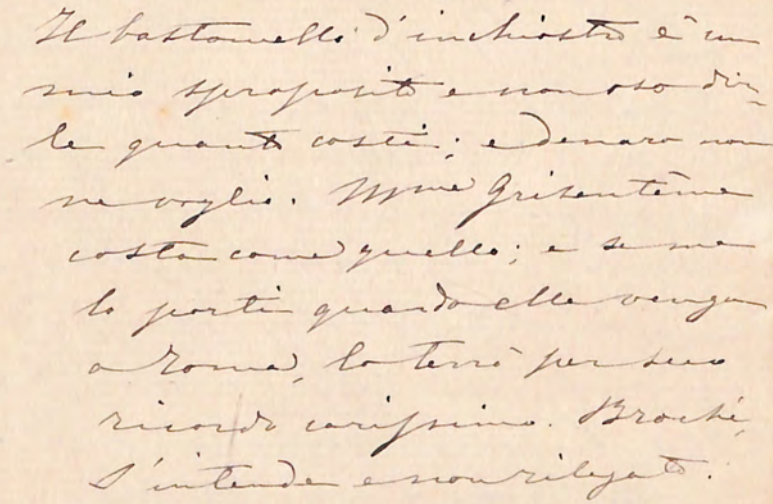 Il bastoncello d'inchiostro è un
mio sproposito e non oso dir-
le quanto costi; e denaro non
ne voglio. Mme
costa come quello; e se me
lo porti quando ella venga
a Roma, lo terrò per suo
ricordo carissimo. Broché,
s'intende e non rilegato.